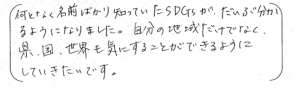 何となく名前ばかり知っていたSDGsが、だいぶ分か
るようになりました。自分の地域だけでなく、
県、国、世界も気にすることができるように
していきたいです。